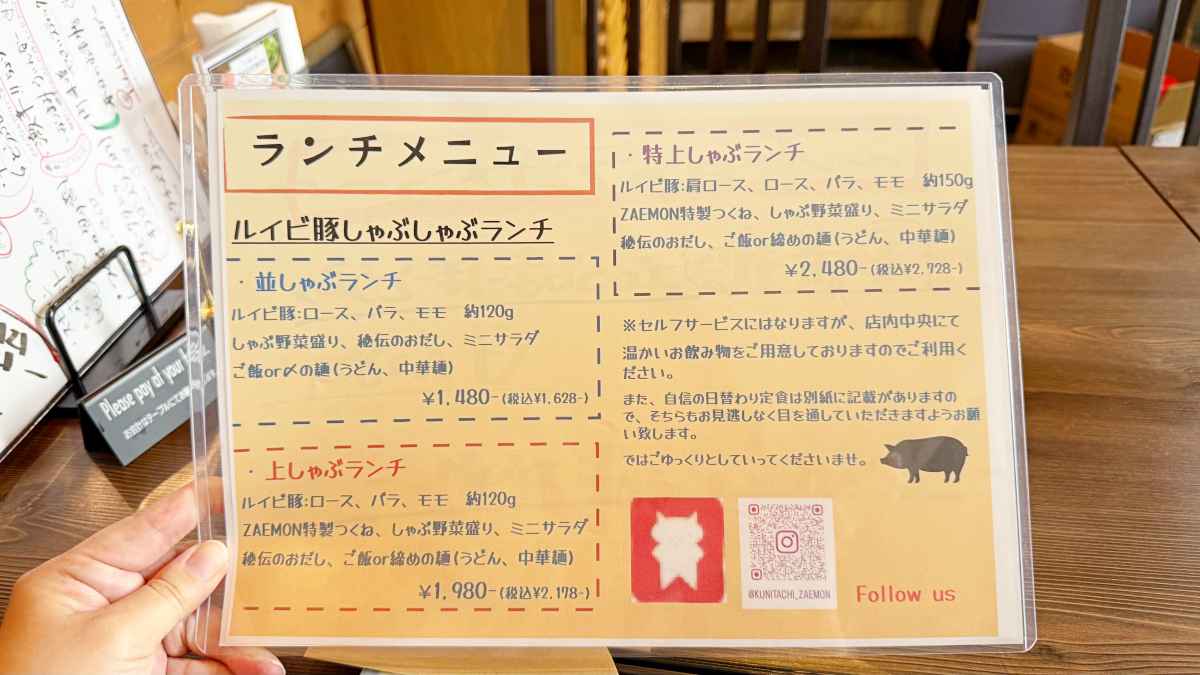 ランチメニュー
ルイビ豚しゃぶしゃぶランチ
・並しゃぶランチ
ルイビ豚:ロース、バラ、モモ　約120g
しゃぶ野菜盛り、秘伝のおだし、ミニサラダ
ご飯or〆の麺(うどん、中華麺)
￥1,480-(税込¥1,628-)
・上しゃぶランチ
ルイビ豚:ロース、バラ、モモ　約120g
ZAEMON特製つくね、しゃぶ野菜盛り、ミニサラダ
秘伝のおだし、ご飯or締めの麺(うどん、中華麺)
￥1,980-(税込¥2,178-)
・特上しゃぶランチ
ルイビ豚:肩ロース、ロース、バラ、モモ　約150g
ZAEMON特製つくね、しゃぶ野菜盛り、ミニサラダ
秘伝のおだし、ご飯or締めの麺(うどん、中華麺)
￥2,480-(税込¥2,728-)
※セルフサービスにはなりますが、店内中央にて
温かいお飲み物をご用意しておりますのでご利用く
ださい。
また、自信の日替わり定食は別紙に記載がありますの
で、そちらもお見逃しなく目を通していただきますようお願
い致します。
ではごゆっくりとしていってくださいませ。
@KUNITACHI_ZAEMON
Follow us
Please pay at your